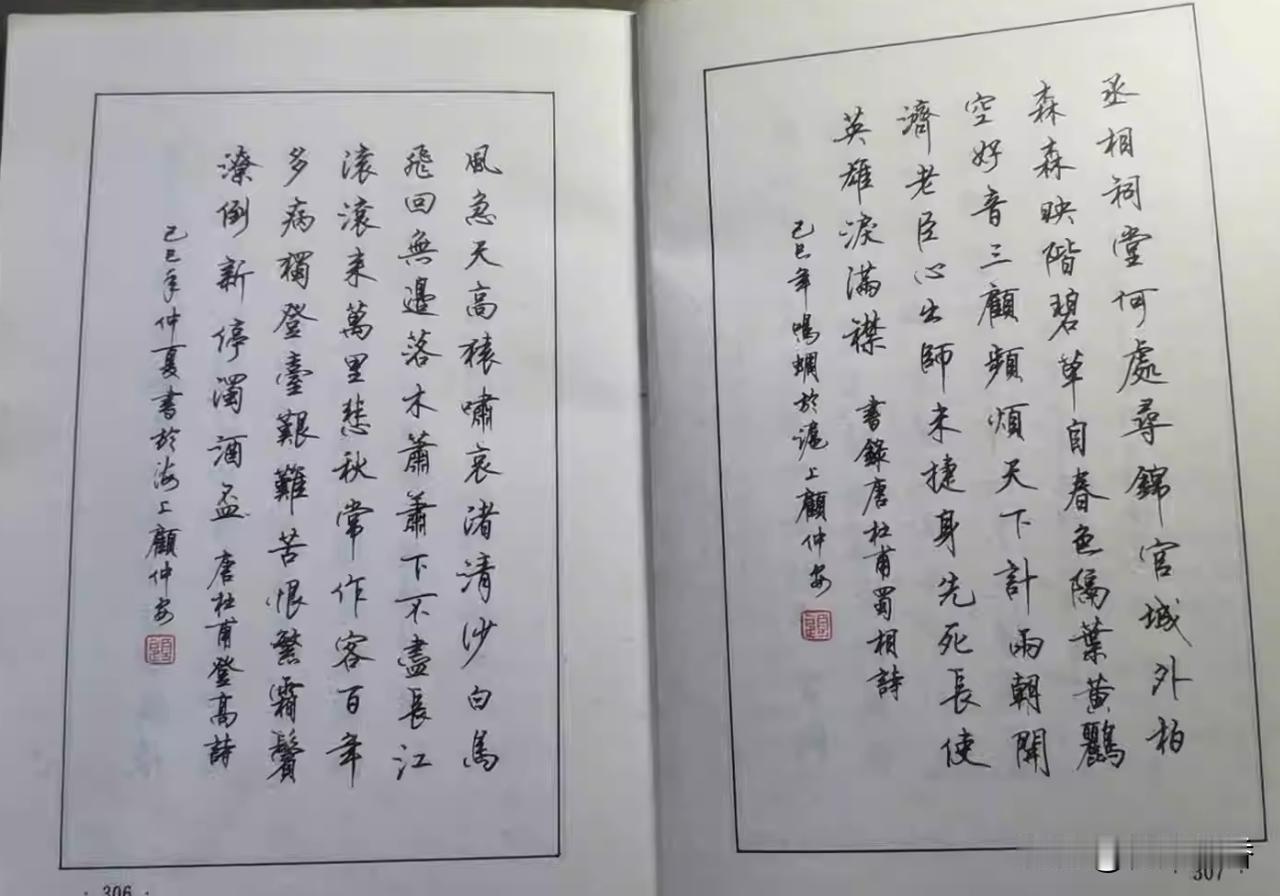 風急天高猿嘯哀渚清沙白鳥
飛回無邊落木蕭蕭下不盡長江
滾滾來萬里悲秋常作客百年
多病獨登臺艱難苦恨繁霜鬢
潦倒新停濁酒盃 唐杜甫登高詩
己巳年仲夏書於海上顧仲安
· 306 ·
丞相祠堂何處尋錦官城外柏
森森映階碧草自春色隔葉黃鸝
空好音三顧頻煩天下計兩朝開
濟老臣心出師未捷身先死長使
英雄淚滿襟 書錄唐杜甫蜀相詩
己巳年鳴蜩於滬上顧仲安
· 307 ·